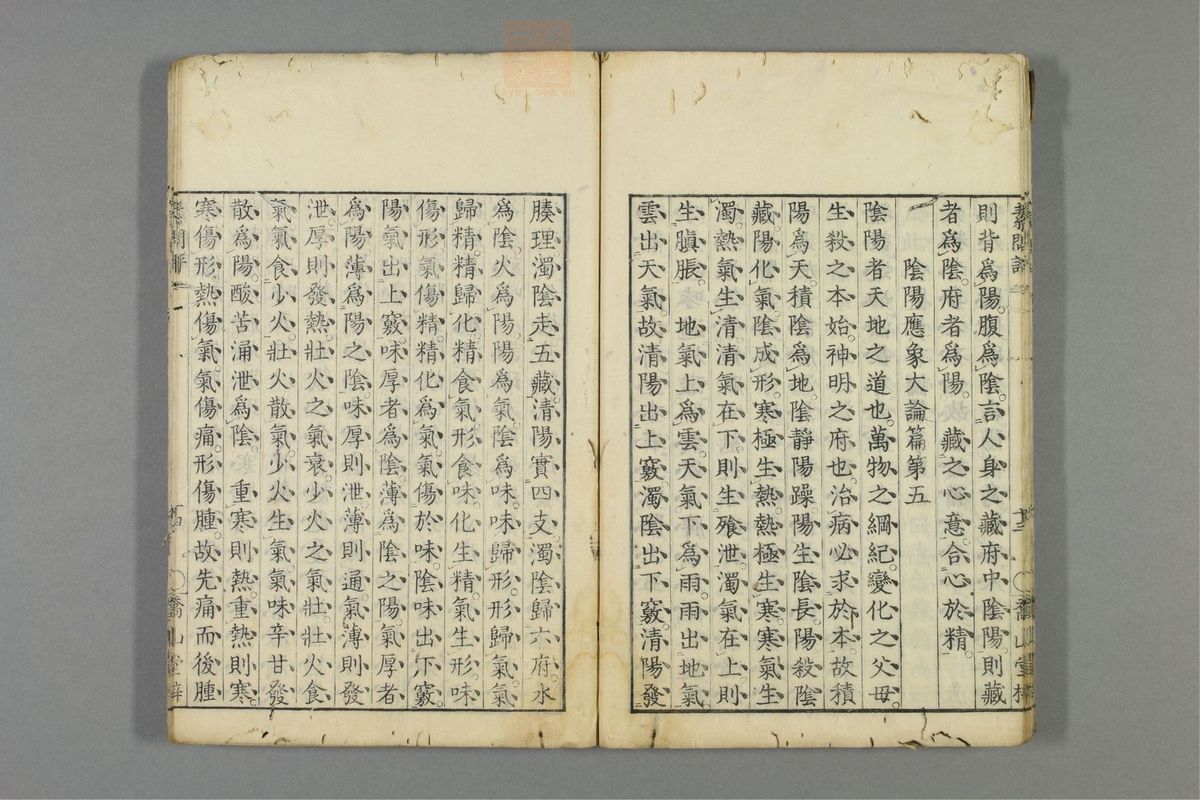 則背爲陽腹爲陰言人身之藏府中陰陽則藏
者爲陰府者爲陽 藏之心意合心於精
陰陽應象大論篇第五
陰陽者天地之道也萬物之綱紀變化之父母
生殺之本始神明之府也治病必求於本故積
陽爲天積陰爲地陰靜陽躁陽生陰長陽殺陰
藏陽化氣陰成形寒極生熱熱極生寒寒氣生
濁熱氣生清清氣在下則生飱泄濁氣在上則
生䐜脹 地氣上爲雲天氣下爲雨雨出地氣
雲出天氣故清陽出上竅濁陰出下竅清陽發
腠理濁陰走五藏清陽實四支濁陰歸六府水
爲陰火爲陽陽爲氣陰爲味味歸形形歸氣氣
歸精精歸化精食氣形食味化生精氣生形味
傷形氣傷精精化爲氣氣傷於味陰味出下竅
陽氣出上竅味厚者爲陰薄爲陰之陽氣厚者
爲陽薄爲陽之陰味厚則泄薄則通氣薄則發
泄厚則發熱壯火之氣衰少火之氣壯壯火食
氣氣食少火壯火散氣少火生氣氣味辛甘發
散爲陽酸苦涌泄爲陰 重寒則熱重熱則寒
寒傷形熱傷氣氣傷痛形傷腫故先痛而後腫